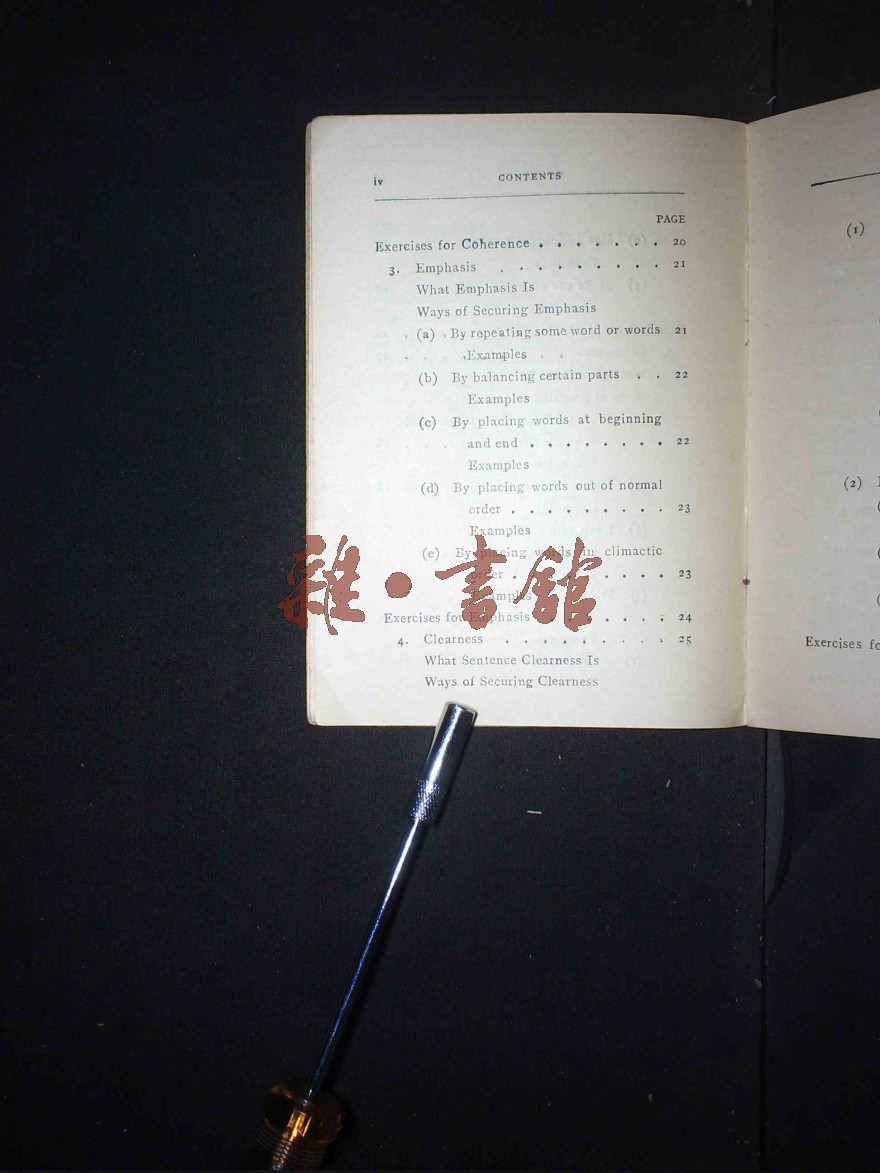 iv CONTENTS
PAGE
Exercises for Coherence . . . . . . . 20
3. Emphasis . . . . . . . . . 21
What Emphasis Is
Ways of Securing Emphasis
(a) By repeating some word or words 21
Examples
(b) By balancing certain parts . . 22
Examples
(c) By placing words at beginning
and end . . . . . . . . 22
Examples
(d) By placing words out of normal
order . . . . . . . . . 23
Examples
(e) By placing words in climactic
order . . . . . . . . . 23
Examples
Exercises for Emphasis . . . . . . . 24
4. Clearness . . . . . . . . . 25
What Sentence Clearness Is
Ways of Securing Clearness
(1)
(2)
Exercises fo
雜·書館